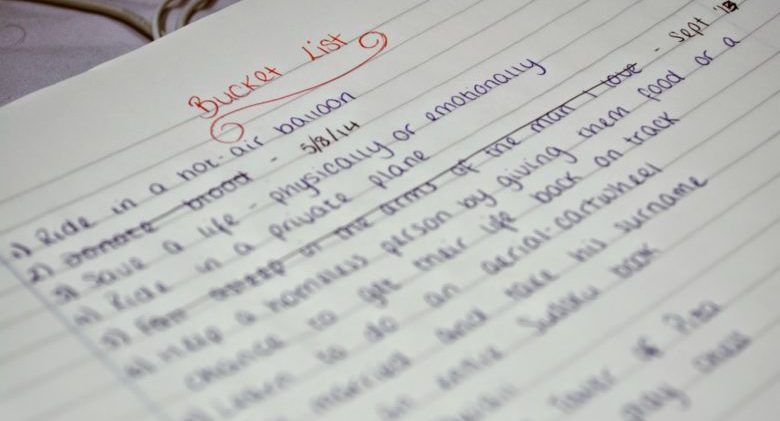 Bucket List
1) Ride in a hot-air balloon
2) Donate blood - 5/8/14
3) Save a life - physically or emotionally
4) Ride in a private plane
5) Fall asleep in the arms of the man I love - Sept '13
6) Help a homeless person by giving them food or a
chance to get their life back on track
Learn to do an aerial cartwheel
married and take his surname
an entire Sudoku book
Tower of Pisa
play chess